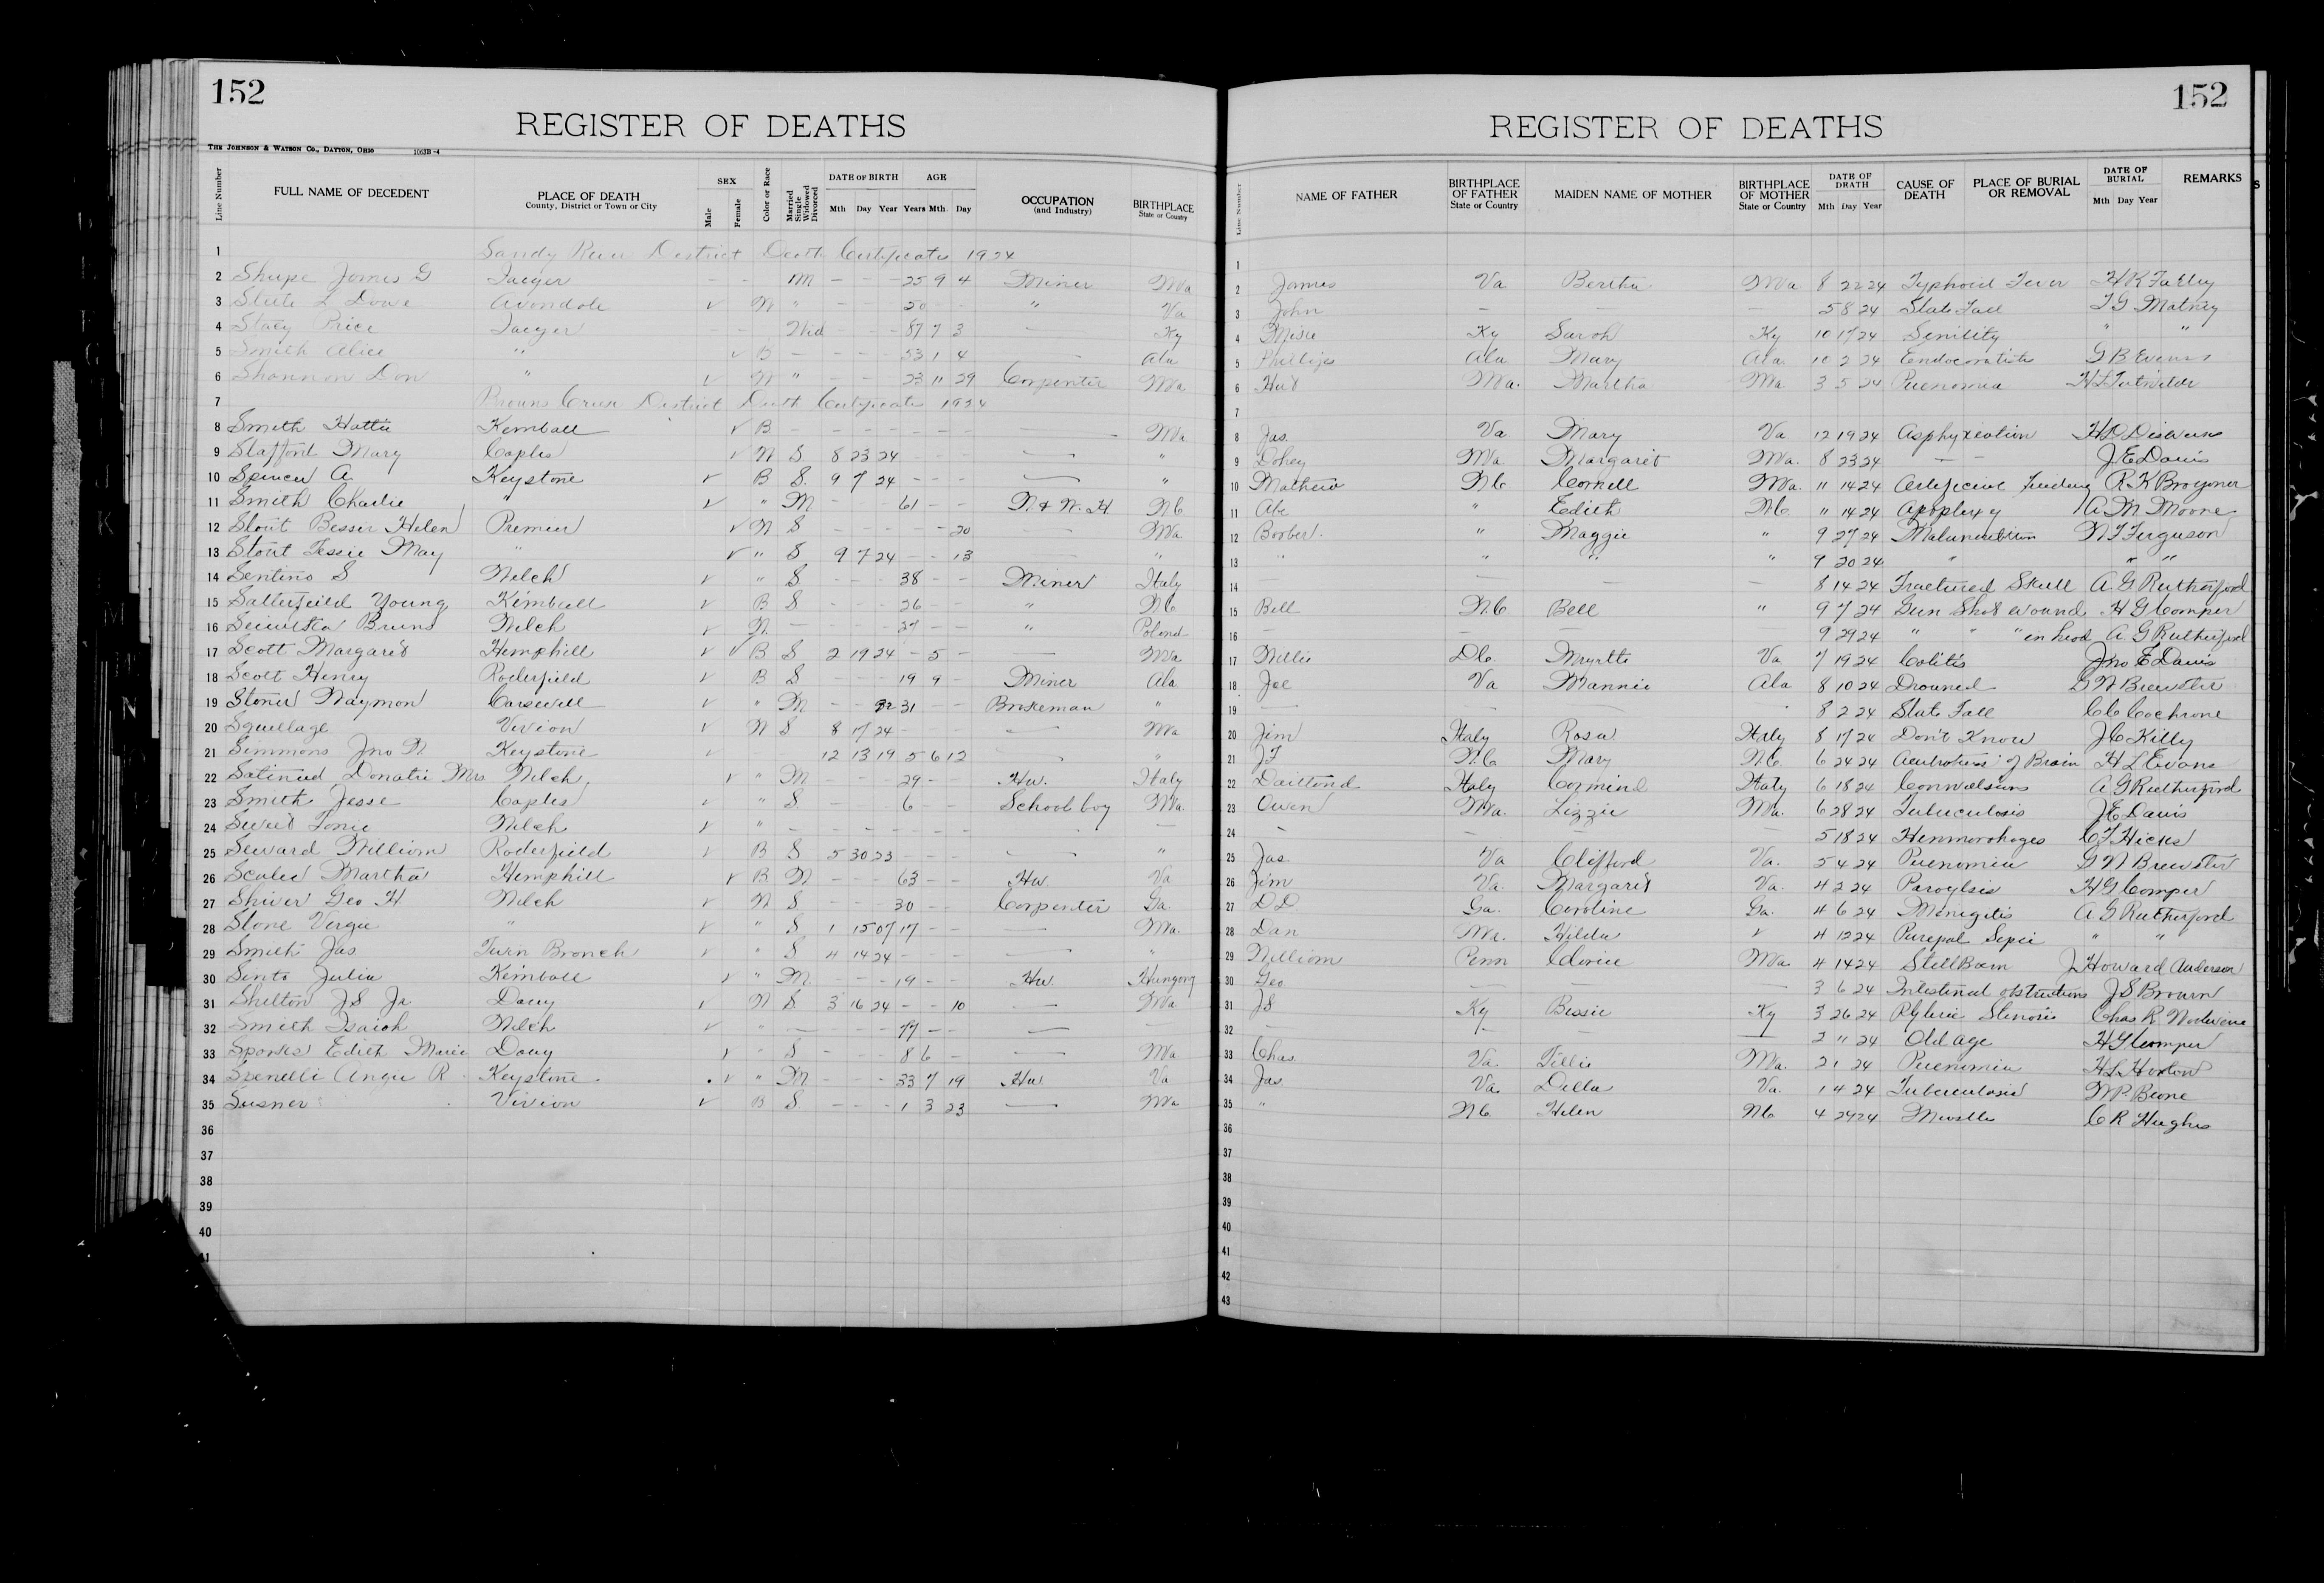 152
REGISTER OF DEATHS
THE JOHNSON & WATSON CO., DAYTON, OHIO 1063B-4
Line Number
FULL NAME OF DECEDENT
PLACE OF DEATH
County, District or Town or City
SEX
Male
Female
Color or Race
Married Single Widowed Divorced
DATE OF BIRTH
Mth Day Year
AGE
Years Mth. Day
OCCUPATION
(and Industry)
BIRTHPLACE
State or Country
1 Sandy River District Death Certificates 1924
2 Shupe James G Iaeger - - M - - - 25 9 4 Miner Wva
3 Steele L Dowe Avondale ✓ W " - - - 50 - - " Va
4 Stacy Price Iaeger - - Wid - - - 87 7 3 - Ky
5 Smith Alice " ✓ B - - - - 53 1 4 - Ala
6 Shannon Don " ✓ W " - - 23 11 29 Carpenter Wva
7 Browns Creek District Death Certificates 1924
8 Smith Hattie Kimball ✓ B - - - - - - - - Wva
9 Stafford Mary Caples ✓ W S 8 23 24 - - - - "
10 Spencer A. Keystone ✓ B S. 9 7 24 - - - - "
11 Smith Charlie " ✓ " M - - - 61 - - N. & W. H NC
12 Stout Bessie Helen Premier ✓ W S - - - - - 20 - Wva
13 Stout Tessie May " ✓ " S 9 7 24 - - 13 - "
14 Sentino S Welch ✓ " S - - - 38 - - Miner Italy
15 Satterfeild Young Kimball ✓ B S - - - 26 - - " NC
16 Bruno Welch ✓ W. - - - - 27 - - " Poland
17 Scott Margaret Hemphill ✓ ✓ B S 2 19 24 - 5 - - Wva
18 Scott Henry Roderfield ✓ B S - - - 19 9 - Miner Ala
19 Stoner Waymon Carswell ✓ " M - - 31 - - Brakeman "
20 Squillage Vivion ✓ W S 8 17 24 - - - - Wva
21 Simmons Jno W Keystone ✓ 12 13 19 5 6 12 - "
22 Satinud Donatri Mrs Welch. ✓ " M - - - 29 - - Hw. Italy
23 Smith Jesse Caples ✓ " S - - - 6 - - School boy Wva.
24 Sweet Tonie Welch ✓ " - - - - - - - - -
25 Seward William Roderfield ✓ B S 5 30 23 - - - - "
26 Scales Martha Hemphill ✓ B W - - - 63 - - Hw Va
27 Shiver Geo H Welch ✓ W S - - - 30 - - Carpenter Ga.
28 Stone Virgie " ✓ " S 1 15 07 17 - - - Wva.
29 Smith Jas Twin Branch ✓ " S 4 14 24 - - - - "
30 Sento Julia Kimball ✓ " M. - - - 19 - - Hw. Hungary
31 Shelton JS Jr Davy ✓ W S 3 16 24 - - 10 - Wva
32 Smith Isaiah Welch ✓ " - - - - 77 - - - -
33 Sparks Edith Marie Davy ✓ " S - - - 8 6 - - Wva
34 Spenelli Angie R. Keystone. ✓ " M - - - 33 7 19 Hw. Va
35 Susner Vivion ✓ B S. - - - 1 3 23 - Wva
36
37
38
39
40
41
152
REGISTER OF DEATHS
Line Number
NAME OF FATHER
BIRTHPLACE OF FATHER
State or Country
MAIDEN NAME OF MOTHER
BIRTHPLACE OF MOTHER
State or Country
DATE OF DEATH
Mth Day Year
CAUSE OF DEATH
PLACE OF BURIAL OR REMOVAL
DATE OF BURIAL
Mth Day Year
REMARKS
S
1
2 James Va Bertha Wva 8 22 24 Typhoid Fever H R Farley
3 John - - - 5 8 24 Slate Fall T G Matney
4 Ky Sarah Ky 10 17 24 Senility " "
5 Phillips Ala. Mary Ala. 10 2 24 G B Evans
6 Wva. Martha Wva. 3 5 24 Puenomia H L Tutwiler
7
8 Jas. Va Mary Va 12 19 24 Asphyxiation
9 Wva Margaret Wva. 8 23 24 - - J E Davis
10 Mathew NC Cornell Wva. 11 14 24 Artificial Feeding
11 Abe " Edith NC. 11 14 24 Apoplexy A M Moore
12 Boober. " Maggie " 9 27 24 N F Ferguson
13 " " " " 9 20 24 " " "
14 - - - - 8 14 24 Fractured Skull A. G Rutherford
15 Bell N.C Bell " 9 7 24 Gun Shot wound H G Comper
16 - - - 9 29 24 " " " in head A G Rutherford
17 Willie DC. Myrtle Va 7 19 24 Colitis Jno E Davis
18 Joe Va Mannie Ala 8 10 24 Drowned G W Brewster
19 - - - 8 2 24 Slate Fall C C Cochrone
20 Jim Italy Rosa Italy 8 17 24 Don't Know J C Killy
21 JF N.C Mary N.C. 6 24 24 of Brain H L Evans
22 Italy Italy 6 18 24 Convulsions A G Rutherford
23 Owen Wva. Lizzie Wva. 6 28 24 Tuberculosis J E Davis
24 - - - - 5 18 24 Hemmorohages C F Hicks
25 Jas. Va Clifford Va. 5 4 24 Puenomia G W Brewster
26 Jim Va. Margaret Va. 4 2 24 Paroylsis H G Comper
27 D D. Ga. Caroline Ga. 4 6 24 Menigitis A G Rutherford
28 Dan Wva. Hilda 4 12 24 " "
29 William Penn Wva 4 14 24 Still Born J Howard Anderson
30 Geo - - - 3 6 24 Intestinal obstructions J S Brown
31 JS Ky Bessie Ky 3 26 24 Chas R
32 - - - - 2 11 24 Old age H G Comper
33 Chas. Va. Tillie Wva. 2 1 24 Puenomia H L Horton
34 Jas. Va. Della Va. 1 4 24 Tuberculosis W P. Beane
35 " N.C. Helen NC 4 29 24 C R Hughes
36
37
38
39
40
41
42
43